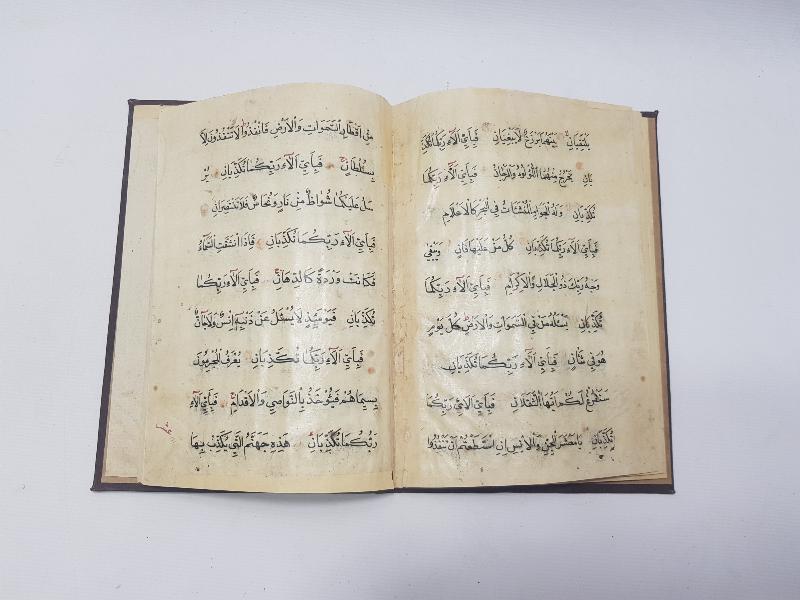 يَلْتَقِيَانِ بَيْنَهُمَا بَرْزَخٌ لَا يَبْغِيَانِ فَبِأَيِّ آلَاءِ رَبِّكُمَا تُكَذِّ
بَانِ يَخْرُجُ مِنْهُمَا اللُّؤْلُؤُ وَالْمَرْجَانُ فَبِأَيِّ آلَاءِ رَبِّكُمَا
تُكَذِّبَانِ وَلَهُ الْجَوَارِ الْمُنْشَئَاتُ فِي الْبَحْرِ كَالْأَعْلَامِ
فَبِأَيِّ آلَاءِ رَبِّكُمَا تُكَذِّبَانِ كُلُّ مَنْ عَلَيْهَا فَانٍ وَيَبْقَى
وَجْهُ رَبِّكَ ذُو الْجَلَالِ وَالْإِكْرَامِ فَبِأَيِّ آلَاءِ رَبِّكُمَا
تُكَذِّبَانِ يَسْئَلُهُ مَنْ فِي السَّمَوَاتِ وَالْأَرْضِ كُلَّ يَوْمٍ
هُوَ فِي شَأْنٍ فَبِأَيِّ آلَاءِ رَبِّكُمَا تُكَذِّبَانِ
سَنَفْرُغُ لَكُمْ أَيُّهَا الثَّقَلَانِ فَبِأَيِّ آلَاءِ رَبِّكُمَا
تُكَذِّبَانِ يَا مَعْشَرَ الْجِنِّ وَالْإِنْسِ إِنِ اسْتَطَعْتُمْ أَنْ تَنْفُذُوا
مِنْ أَقْطَارِ السَّمَوَاتِ وَالْأَرْضِ فَانْفُذُوا لَا تَنْفُذُونَ إِلَّا
بِسُلْطَانٍ فَبِأَيِّ آلَاءِ رَبِّكُمَا تُكَذِّبَانِ يُرْ
سَلُ عَلَيْكُمَا شُوَاظٌ مِنْ نَارٍ وَنُحَاسٌ فَلَا تَنْتَصِرَانِ
فَبِأَيِّ آلَاءِ رَبِّكُمَا تُكَذِّبَانِ فَإِذَا انْشَقَّتِ السَّمَاءُ
فَكَانَتْ وَرْدَةً كَالدِّهَانِ فَبِأَيِّ آلَاءِ رَبِّكُمَا
تُكَذِّبَانِ فَيَوْمَئِذٍ لَا يُسْئَلُ عَنْ ذَنْبِهِ إِنْسٌ وَلَا جَانٌّ
فَبِأَيِّ آلَاءِ رَبِّكُمَا تُكَذِّبَانِ يُعْرَفُ الْمُجْرِمُونَ
بِسِيمَاهُمْ فَيُؤْخَذُ بِالنَّوَاصِي وَالْأَقْدَامِ فَبِأَيِّ آلَاءِ
رَبِّكُمَا تُكَذِّبَانِ هَذِهِ جَهَنَّمُ الَّتِي يُكَذِّبُ بِهَا